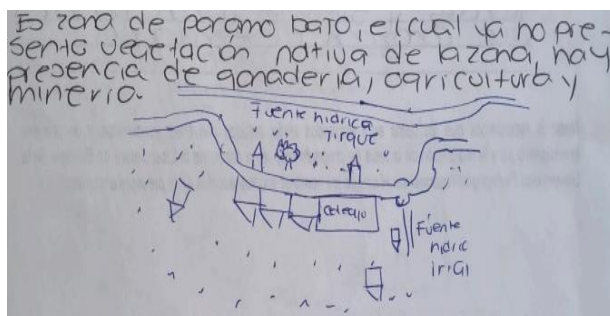 Es zona de paramo bato, el cual ya no pre-
senta vegetación nativa de la zona, hay
presencia de ganaderia, agricultura y
mineria.
Fuente hidrica
Tirque
colegio
Fuente
hidric